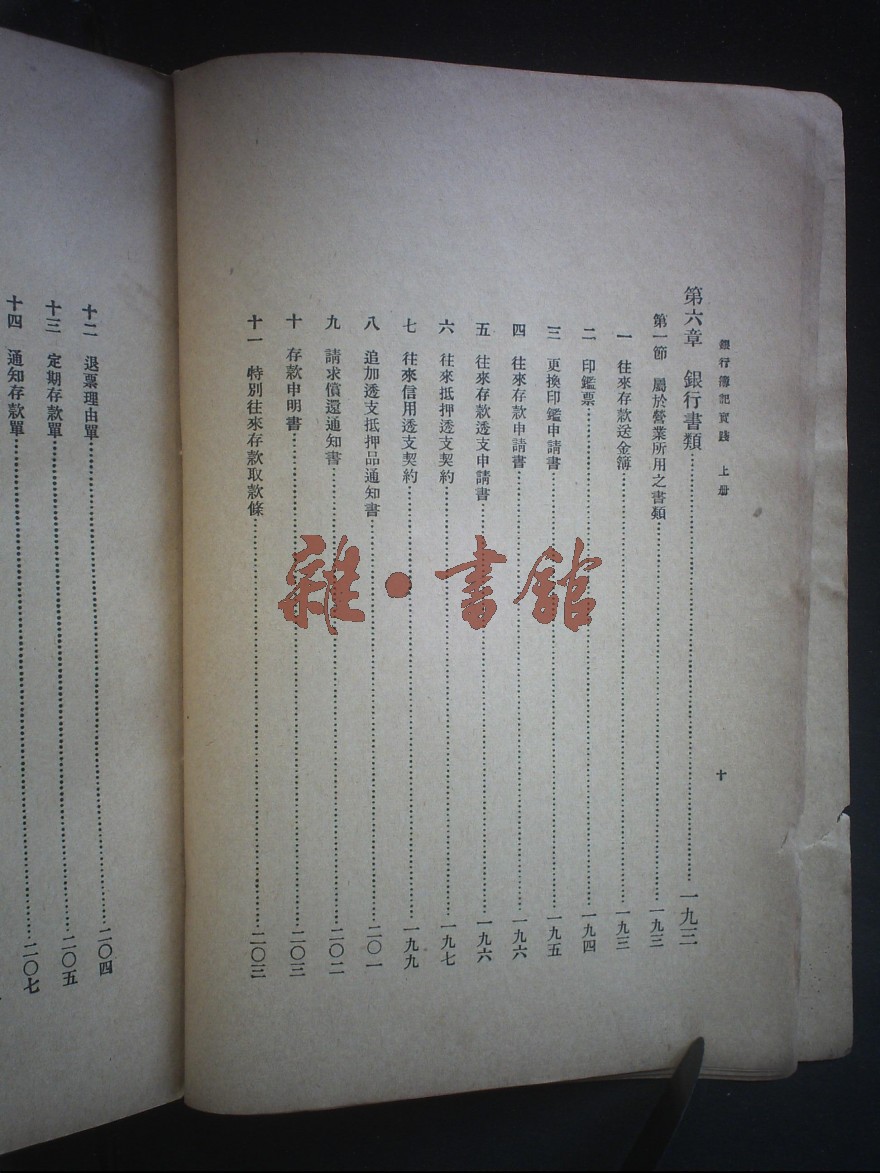 銀行簿記實踐 上册
十
第六章 銀行書類……一九三
第一節 屬於營業所用之書類……一九三
一 往來存款送金簿……一九三
二 印鑑票……一九四
三 更換印鑑申請書……一九五
四 往來存款申請書……一九六
五 往來存款透支申請書……一九六
六 往來抵押透支契約……一九七
七 往來信用透支契約……一九九
八 追加透支抵押品通知書……二〇一
九 請求償還通知書……二〇二
十 存款申明書……二〇三
十一 特別往來存款取款條……二〇三
十二 退票理由單……二〇四
十三 定期存款單……二〇五
十四 通知存款單……二〇七
雜·書館